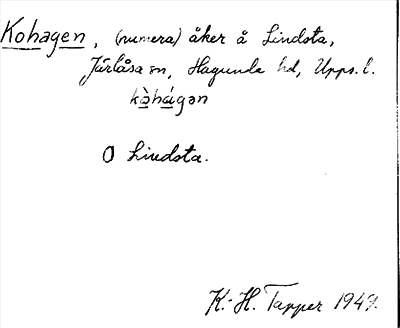 Kohagen, (numera) åker å Lindsta,
Järlåsa sn, Hagunda hd, Upps. l.
kòhágən
O Lindsta.
K.-H. Tapper 1947.